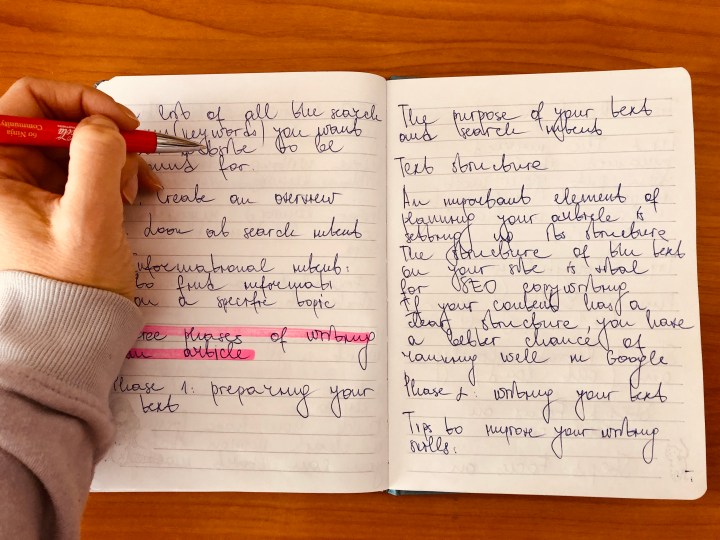 list of all the search
(keywords) you want
website to be
found for.
Create an overview
Look at search intent
Informational intent:
to find informati
on a specific topic
ree phases of writing
an article
Phase 1: preparing your
text
The purpose of your text
and search intent
Text structure
An important element of
planning your article is
setting up its structure
The structure of the text
on your site is vital
for SEO copywriting
If your content has a
clear structure, you have
a better chance of
ranking well in Google
Phase 2: writing your text
Tips to improve your writing
skills:
Go Ninja
Community